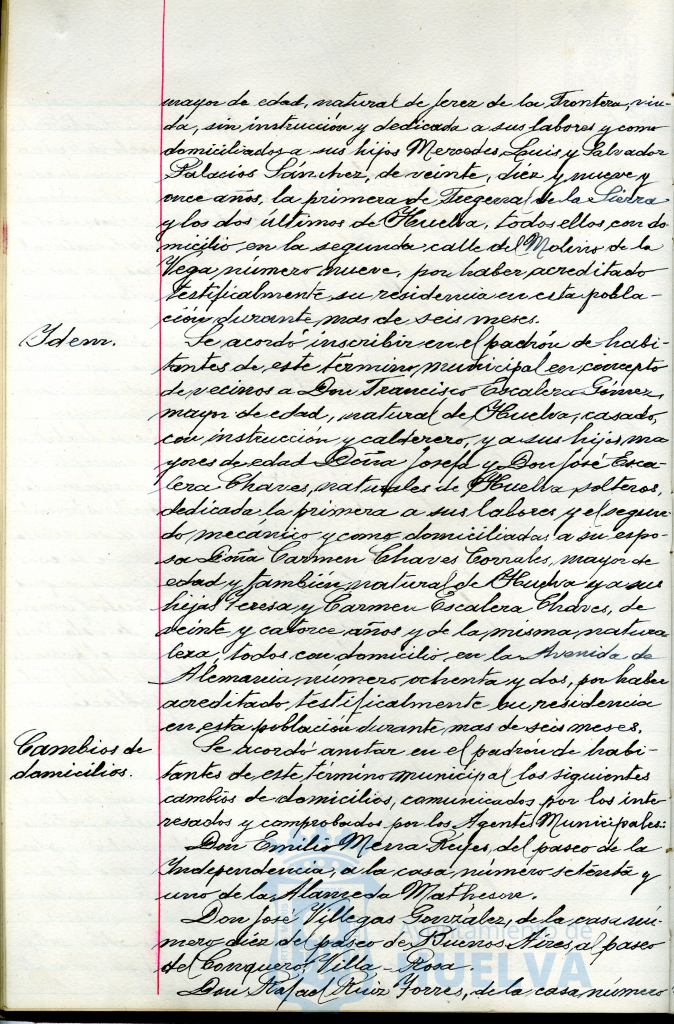 mayor de edad, natural de Jerez de la Frontera, viu-
da, sin instrucción y dedicada a sus labores y como
domiciliados a sus hijos Mercedes, Luis y Salvador
Palacios Sánchez, de veinte, diez y nueve y
once años, la primera de de la Sierra
y los dos últimos de Huelva, todos ellos con do
micilio en la segunda calle del Molino de la
Vega, número nueve, por haber acreditado
testificalmente su residencia en esta pobla-
ción durante mas de seis meses.
Ydem.
Se acordó inscribir en el padrón de habi-
tantes de este término municipal en concepto
de vecinos a Don Francisco Escalera Gómez,
mayor de edad, natural de Huelva, casado,
con instrucción y calderero, y a sus hijos ma
yores de edad Doña Josefa y Don José Esca-
lera Chaves, naturales de Huelva, solteros,
dedicada la primera a sus labores y el segun-
do mecánico y como domiciliadas a su espo-
sa Doña Carmen Chaves Corrales, mayor de
edad y también natural de Huelva y a sus
hijas Teresa y Carmen Escalera Chaves, de
veinte y catorce años y de la misma natura
leza, todos con domicilio en la Avenida de
Alemania número ochenta y dos, por haber
acreditado testificalmente su residencia
en esta población durante mas de seis meses.
Cambios de
domicilios.
Se acordó anotar en el padrón de habi-
tantes de este término municipal los siguientes
cambios de domicilios, comunicados por los inte
resados y comprobados por los Agentes Municipales:
Don Emilio Reyes, del paseo de la
Independencia, a la casa número setenta y
uno de la Alameda Matheson.
Don José Villegas González, de la casa nú-
mero diez del paseo de Buenos Aires, al paseo
del Conquero, Villa-Rosa.
Don Rafael Ruiz Torres, de la casa número
Ayuntamiento de
HUELVA